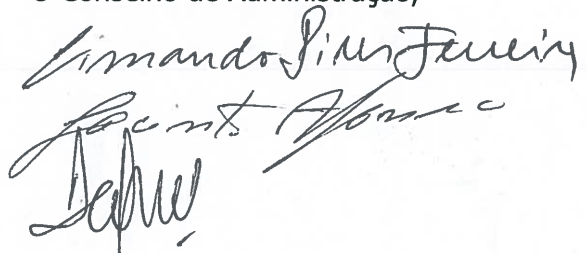 O Conselho de Administração,
Armando Pires Ferreira
Jacinto Afonso